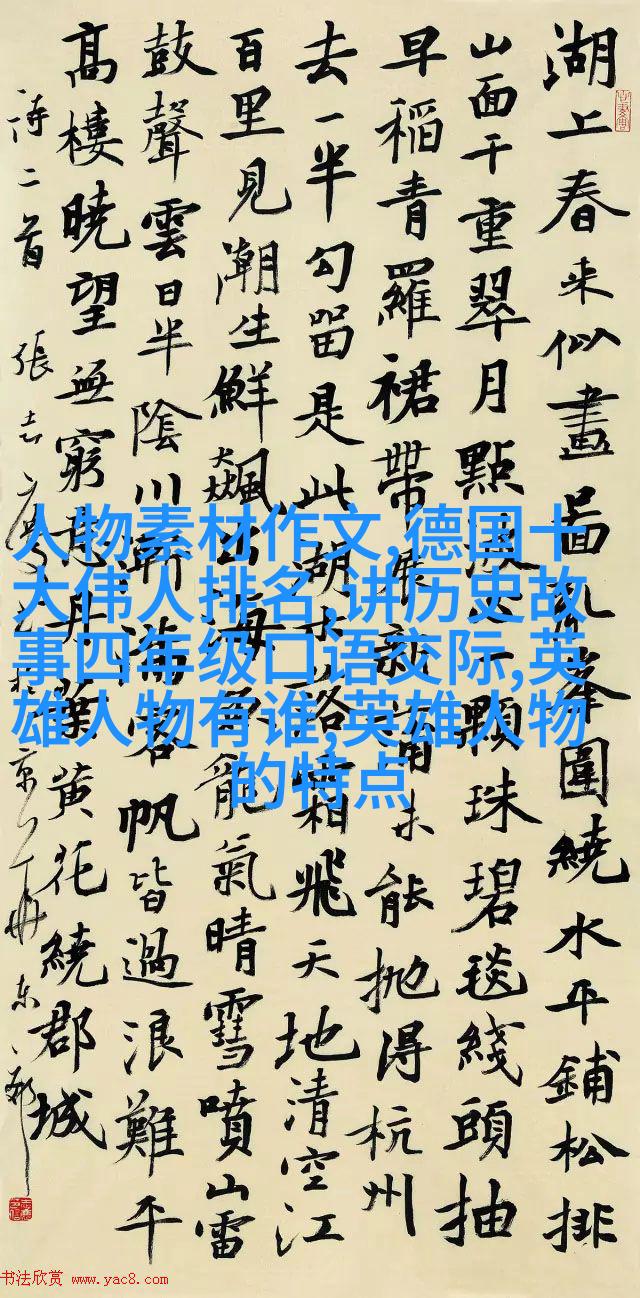 湖上春来似畫啚乱峯圍繞水平鋪松排
山面千重翠月點波心一顆珠碧毯綫頭抽
早稻青羅裙帶展新蒲未能抛得杭州
去一半勾留是此湖木落霜飛天地清空江
百里見潮生鮮飚出海魚龍氣晴雪噴山雷
鼓聲雲日半陰川漸滿客帆皆過浪難平
高樓曉望無窮意丹葉黄花繞郡城
诗二首 張志
人物素材作文,德国十
大伟人排名,讲历史故
事四年级口语交际,英
雄人物有谁,英雄人物
的特点
书法欣赏 www.yac8.com